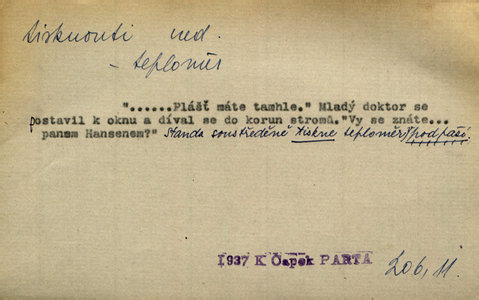 tisknouti ned.
– teploměr
"......Plášť máte tamhle." Mladý doktor se
postavil k oknu a díval se do korun stromů."Vy se znáte...
panem Hansenem?" Standa soustředěně tiskne teploměr v podpaží.
1937 K Čapek PARTA
206, 11.